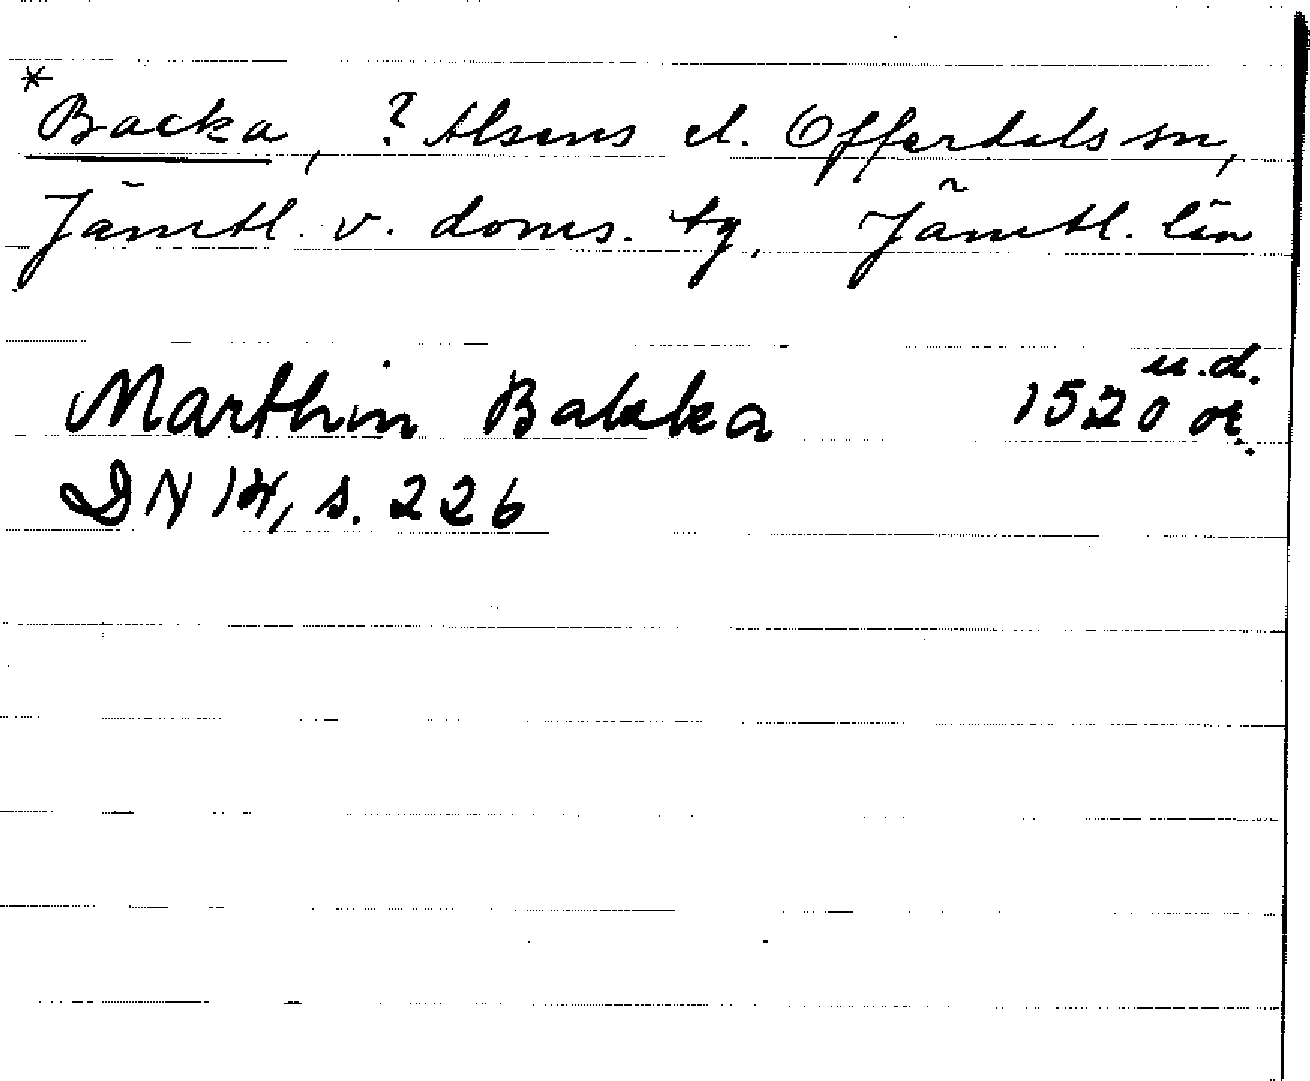 *Backa, ? Alsens el. Offerdals sn,
Jämtl. v. doms. tg, Jämtl. län
Marthin Bakka 1520 u.d. or.
DN 14, s. 226